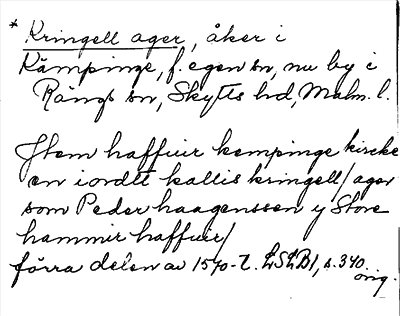 * Kringell ager, åker i
Kämpinge, f. egen sn, nu by i
Rängs sn, Skytts hd, Malm. l.
Jtem haffuir kempinge kircke
en i ordtt kallis kringell/ager
som Peder haagenssen y Store
hammir haffuir/
förra delen av 1570-t. LSLB1, s. 340
orig.